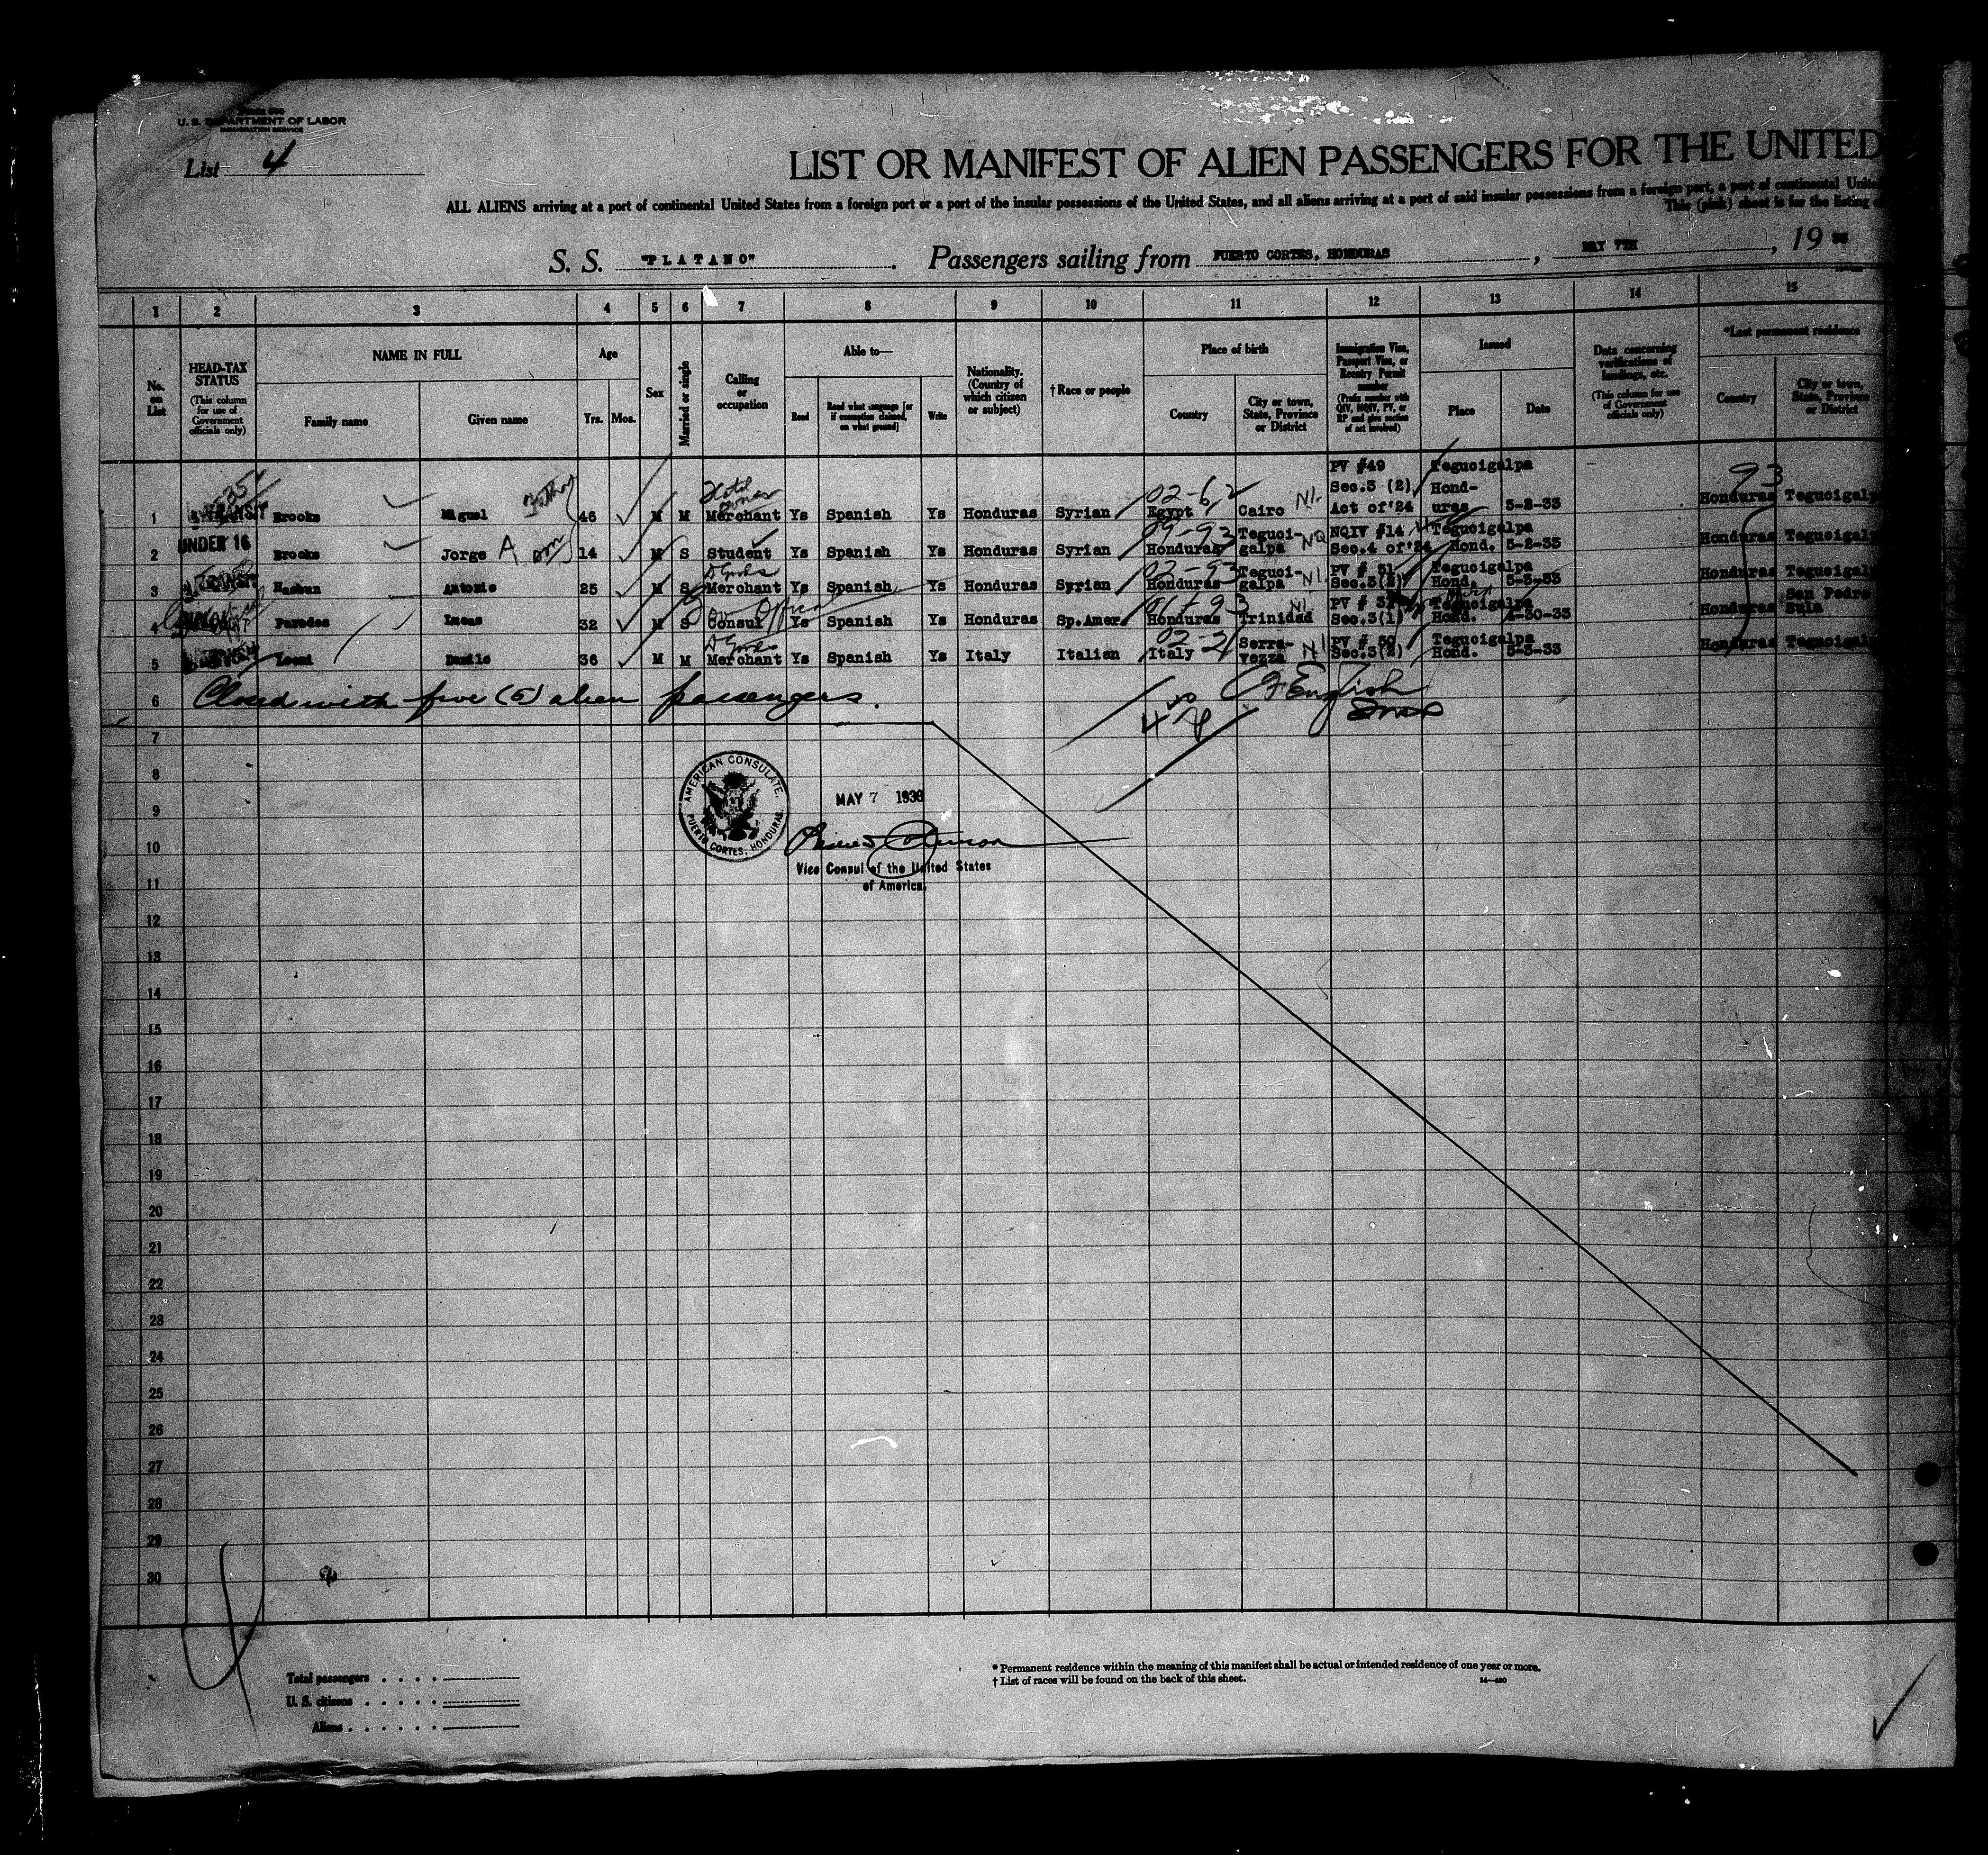 U. S. DEPARTMENT OF LABOR
IMMIGRATION SERVICE
List 4
LIST OR MANIFEST OF ALIEN PASSENGERS FOR THE UNITED
ALL ALIENS arriving at a port of continental United States from a foreign port or a port of the insular possessions of the United States, and all aliens arriving at a port of said insular possessions from a foreign port, a port of continental Unite
This (pink) sheet is for the listing
S. S. "PLATANO". Passengers sailing from PUERTO CORTES, HONDURAS, MAY 7TH, 19 33
1 2 3 4 5 6 7 8 9 10 11 12 13 14 15
No. on List
HEAD-TAX STATUS (This column for use of Government officials only)
NAME IN FULL
Family name Given name
Age
Yrs. Mos.
Sex
Married or single
Calling or occupation
Able to—
Read
Read what language [or if exemption claimed, on what ground]
Write
Nationality. (Country of which citizen or subject)
†Race or people
Place of birth
Country
City or town, State, Province or District
Immigration Visa, Passport Visa, or Reentry Permit number (Prefix number with QIV, NQIV, PV, or RP and give section of act involved)
Issued
Place Date
Data concerning verifications of landings, etc. (This column for use of Government officials only)
*Last permanent residence
Country
City or town, State, Province or District
1 Brooks Miguel Father 46 M M Hotel Merchant Ys Spanish Ys Honduras Syrian 02-62 Egypt Cairo PV #49 Sec.3 (2) Act of '24 Tegucigalpa Honduras 5-2-33 93 Honduras Tegucigalp
2 UNDER 16 Brooks Jorge A son 14 M S Student Ys Spanish Ys Honduras Syrian 09-93 Honduras Teguci-galpa NQ NQIV #14 Sec.4 of '24 Tegucigalpa Hond. 5-2-33 Honduras Tegucigal
3 Hasbun Antonio 25 M S D Goods Merchant Ys Spanish Ys Honduras Syrian 02-93 Honduras Teguci-galpa PV # 51 Sec.3(2) Tegucigalpa Hond. 5-3-33 Honduras Tegucigal
4 Paredes Lucas 32 M S Consul Ys Spanish Ys Honduras Sp.Amer. Honduras Trinidad Sec.3(1) Tegucigalpa Hond. 4-30-33 Honduras San Pedro Sula
5 Leoni Danilo 36 M M D Goods Merchant Ys Spanish Ys Italy Italian Italy Serra-vezza PV # 50 Sec.3(2) Tegucigalpa Hond. 5-3-33 Honduras Tegucigal
6 Closed with five (5) alien passengers. English
7
8
9
10
11
12
13
14
15
16
17
18
19
20
21
22
23
24
25
26
27
28
29
30
AMERICAN CONSULATE,
PUERTO CORTES, HONDURAS.
MAY 7 1933
Vice Consul of the United States
of America.
Total passengers . . . .
U. S. citizens . . . . .
Aliens . . . . . .
* Permanent residence within the meaning of this manifest shall be actual or intended residence of one year or more.
† List of races will be found on the back of this sheet.
14—480